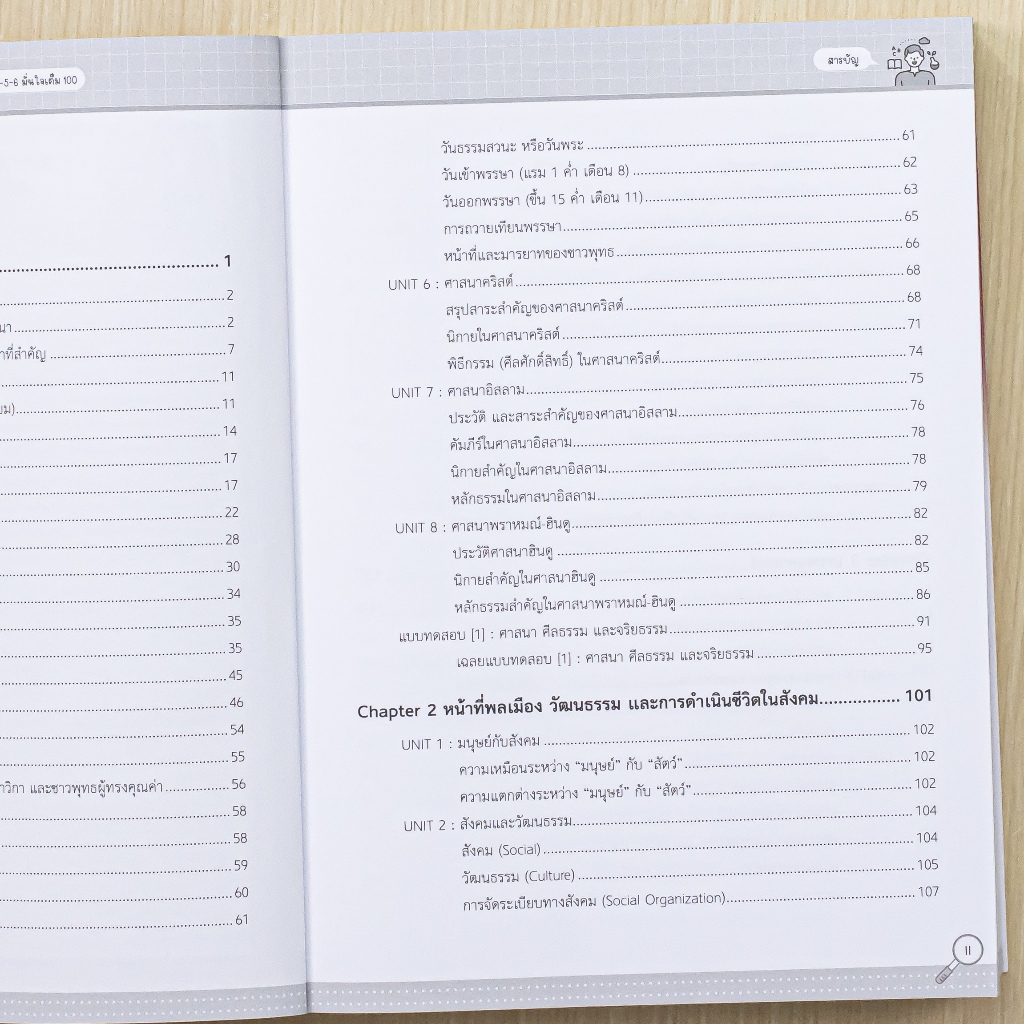 -5-6 มั่นใจเต็ม 100
1
2
2
ที่สำคัญ 7
11
11
14
17
17
22
28
30
34
35
35
45
46
54
55
และชาวพุทธผู้ทรงคุณค่า 56
58
58
59
60
61
สารบัญ
วันธรรมสวนะ หรือวันพระ 61
วันเข้าพรรษา (แรม 1 ค่ำ เดือน 8) 62
วันออกพรรษา (ขึ้น 15 ค่ำ เดือน 11) 63
การถวายเทียนพรรษา 65
หน้าที่และมารยาทของชาวพุทธ 66
UNIT 6 : ศาสนาคริสต์ 68
สรุปสาระสำคัญของศาสนาคริสต์ 68
นิกายในศาสนาคริสต์ 71
พิธีกรรม (ศีลศักดิ์สิทธิ์) ในศาสนาคริสต์ 74
UNIT 7 : ศาสนาอิสลาม 75
ประวัติ และสาระสำคัญของศาสนาอิสลาม 76
คัมภีร์ในศาสนาอิสลาม 78
นิกายสำคัญในศาสนาอิสลาม 78
หลักธรรมในศาสนาอิสลาม 79
UNIT 8 : ศาสนาพราหมณ์-ฮินดู 82
ประวัติศาสนาฮินดู 82
นิกายสำคัญในศาสนาฮินดู 85
หลักธรรมสำคัญในศาสนาพราหมณ์-ฮินดู 86
แบบทดสอบ [1] : ศาสนา ศีลธรรม และจริยธรรม 91
เฉลยแบบทดสอบ [1] : ศาสนา ศีลธรรม และจริยธรรม 95
Chapter 2 หน้าที่พลเมือง วัฒนธรรม และการดำเนินชีวิตในสังคม 101
UNIT 1 : มนุษย์กับสังคม 102
ความเหมือนระหว่าง “มนุษย์” กับ “สัตว์” 102
ความแตกต่างระหว่าง “มนุษย์” กับ “สัตว์” 102
UNIT 2 : สังคมและวัฒนธรรม 104
สังคม (Social) 104
วัฒนธรรม (Culture) 105
การจัดระเบียบทางสังคม (Social Organization) 107
II